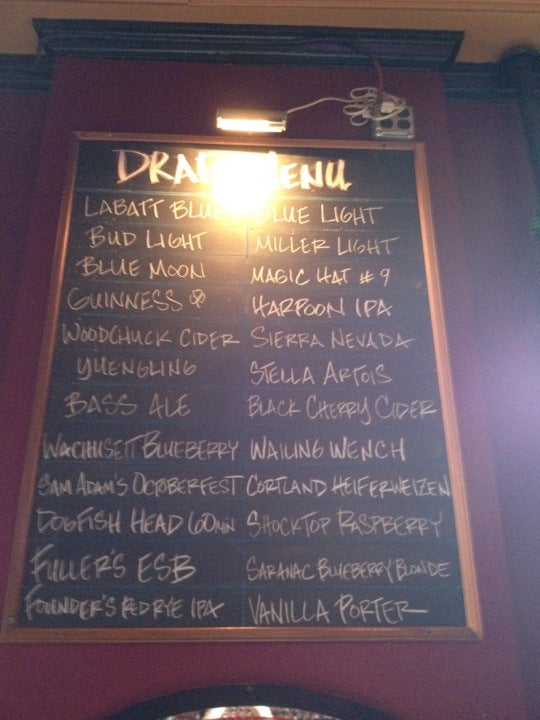 DRAFT MENU
LABATT BLUE BLUE LIGHT
BUD LIGHT MILLER LIGHT
BLUE MOON MAGIC HAT #9
GUINNESS HARPOON IPA
WOODCHUCK CIDER SIERRA NEVADA
YUENGLING STELLA ARTOIS
BASS ALE BLACK CHERRY CIDER
WACHUSETT BLUEBERRY WAILING WENCH
SAM ADAM'S OCTOBERFEST CORTLAND HEIFERWEIZEN
DOGFISH HEAD 60MIN SHOCKTOP RASPBERRY
FULLER'S ESB SARANAC BLUEBERRY BLONDE
FOUNDER'S RED RYE IPA VANILLA PORTER